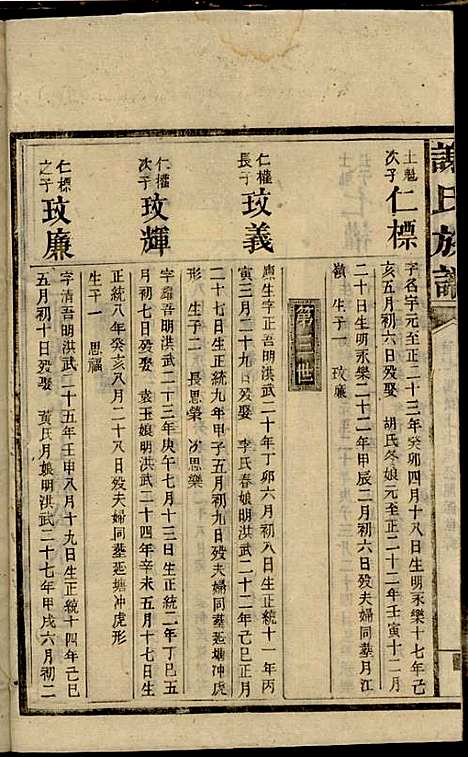 謝氏族譜
士魁
次子
仁標
字名字元至正二十三年癸卯四月十八日生明永樂十七年己
亥五月初六日歿娶 胡氏冬娘元至正二十二年壬寅十二月
二十日生明永樂二十二年甲辰二月初六日歿夫婦同墓月江
嶺 生子一 玫廉
第三世
仁權
長子
玫義
庠生字正吾明洪武二十年丁卯六月初二日生正統十一年丙
寅三月二十九日歿娶 李氏春娘明洪武二十二年己巳正月
二十七日生正統九年甲子五月初九日歿夫婦同墓延塘冲虎
形 生子二 長思榮 次思樂
仁權
次子
玫輝
字耀吾明洪武二十三年庚午七月十三日生正統二年丁巳五
月初七日歿娶 袁玉娘明洪武二十四年辛未五月十七日生
正統八年癸亥八月二十八日歿夫婦同墓延塘冲虎形
生子一 思福
仁標
之子
玫廉
字清吾明洪武二十五年壬申八月十九日生正統十四年己巳
五月初十日歿娶 黃氏月娘明洪武二十七年甲戌六月初二